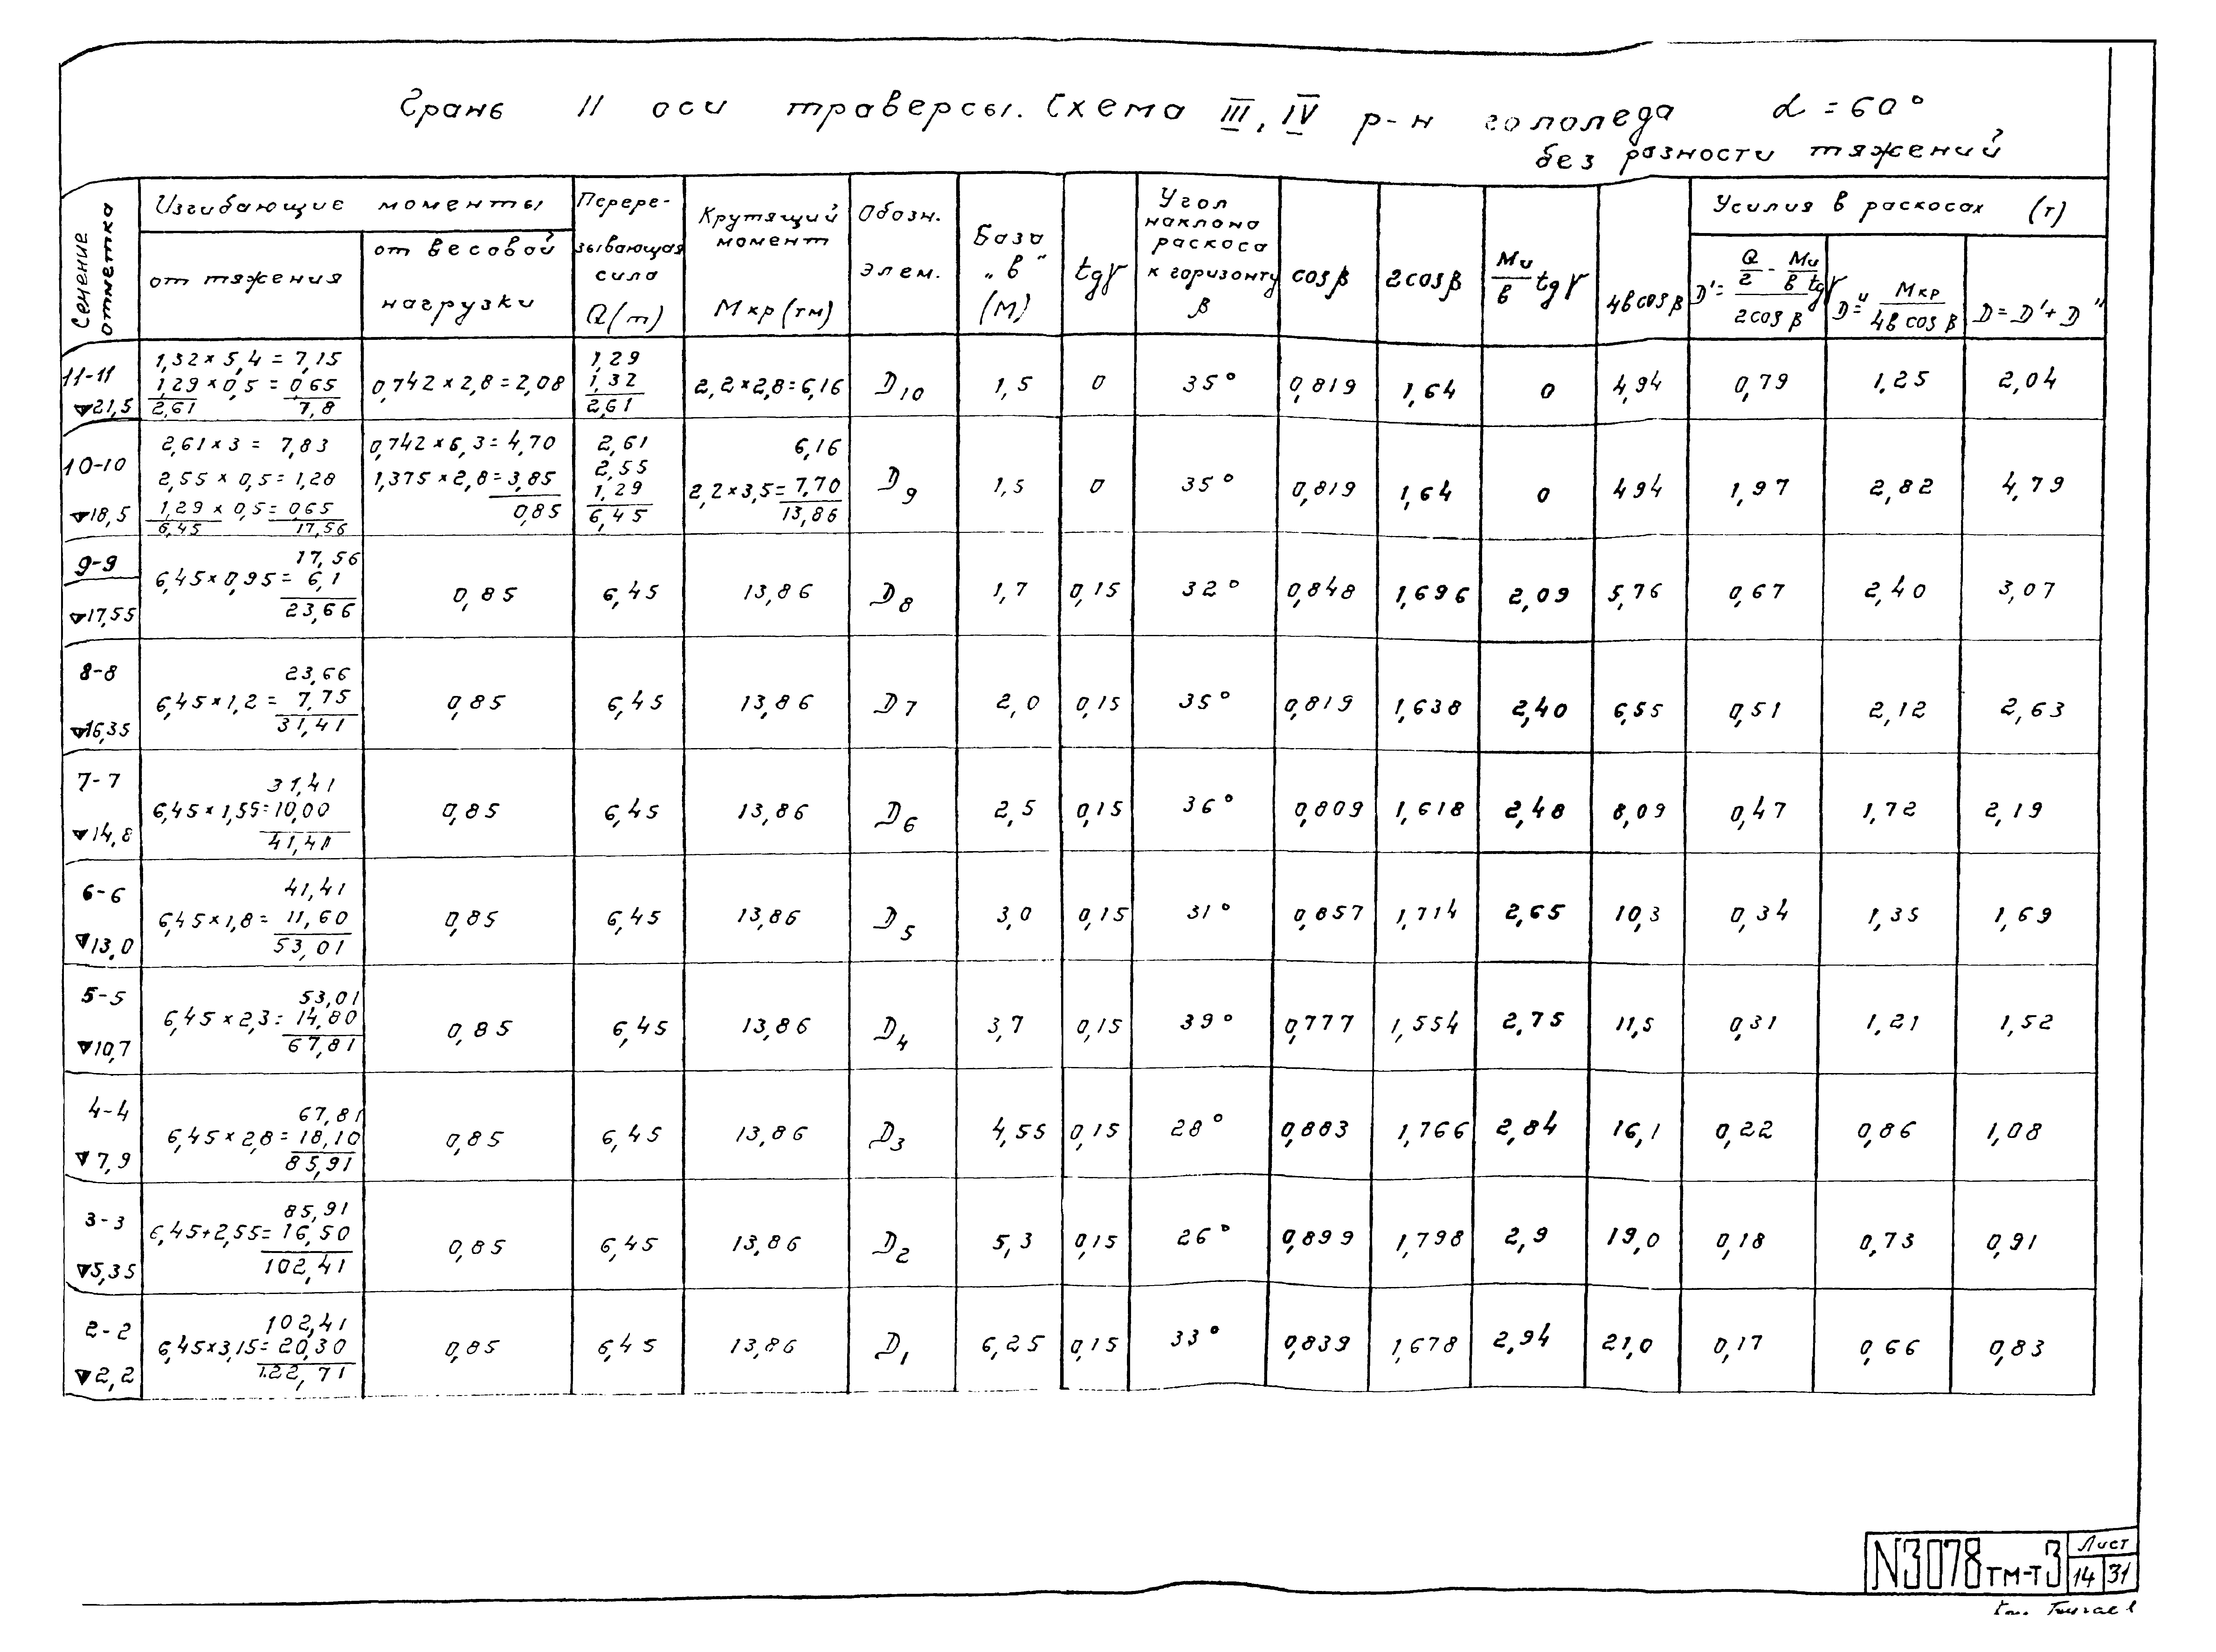 Грань II оси траверсы. Схема III, IV р-н гололеда α = 60°
без разности тяжений
Сечение отметка
Изгибающие моменты
от тяжения
от весовой нагрузки
Перерезывающая сила Q (т)
Крутящий момент Мкр (тм)
Обозн. элем.
База „в“ (м)
tgγ
Угол наклона раскоса к горизонту β
cosβ
2cosβ
Ми/в tgγ
4вcosβ
Усилия в раскосах (т)
D' = (Q/2 - Ми/в tgγ)/2cosβ
D" = Мкр/4в cosβ
D = D' + D"
11-11 ▽21,5
1,32 × 5,4 = 7,15
1,29 × 0,5 = 0,65
2,61 7,8
0,742 × 2,8 = 2,08
1,29
1,32
2,61
2,2 × 2,8 = 6,16
D10 1,5 0 35° 0,819 1,64 0 4,94 0,79 1,25 2,04
10-10 ▽18,5
2,61 × 3 = 7,83
2,55 × 0,5 = 1,28
1,29 × 0,5 = 0,65
6,45 17,56
0,742 × 6,3 = 4,70
1,375 × 2,8 = 3,85
0,85
2,61
2,55
1,29
6,45
6,16
2,2 × 3,5 = 7,70
13,86
D9 1,5 0 35° 0,819 1,64 0 494 1,97 2,82 4,79
9-9 ▽17,55
17,56
6,45 × 0,95 = 6,1
23,66
0,85 6,45 13,86 D8 1,7 0,15 32° 0,848 1,696 2,09 5,76 0,67 2,40 3,07
8-8 ▽16,35
23,66
6,45 × 1,2 = 7,75
31,41
0,85 6,45 13,86 D7 2,0 0,15 35° 0,819 1,638 2,40 6,55 0,51 2,12 2,63
7-7 ▽14,8
31,41
6,45 × 1,55 = 10,00
41,41
0,85 6,45 13,86 D6 2,5 0,15 36° 0,809 1,618 2,48 8,09 0,47 1,72 2,19
6-6 ▽13,0
41,41
6,45 × 1,8 = 11,60
53,01
0,85 6,45 13,86 D5 3,0 0,15 31° 0,857 1,714 2,65 10,3 0,34 1,35 1,69
5-5 ▽10,7
53,01
6,45 × 2,3 = 14,80
67,81
0,85 6,45 13,86 D4 3,7 0,15 39° 0,777 1,554 2,75 11,5 0,31 1,21 1,52
4-4 ▽7,9
67,81
6,45 × 2,8 = 18,10
85,91
0,85 6,45 13,86 D3 4,55 0,15 28° 0,883 1,766 2,84 16,1 0,22 0,86 1,08
3-3 ▽5,35
85,91
6,45+2,55 = 16,50
102,41
0,85 6,45 13,86 D2 5,3 0,15 26° 0,899 1,798 2,9 19,0 0,18 0,73 0,91
2-2 ▽2,2
102,41
6,45×3,15 = 20,30
122,71
0,85 6,45 13,86 D1 6,25 0,15 33° 0,839 1,678 2,94 21,0 0,17 0,66 0,83
N3078тм-т3
Лист
14 31